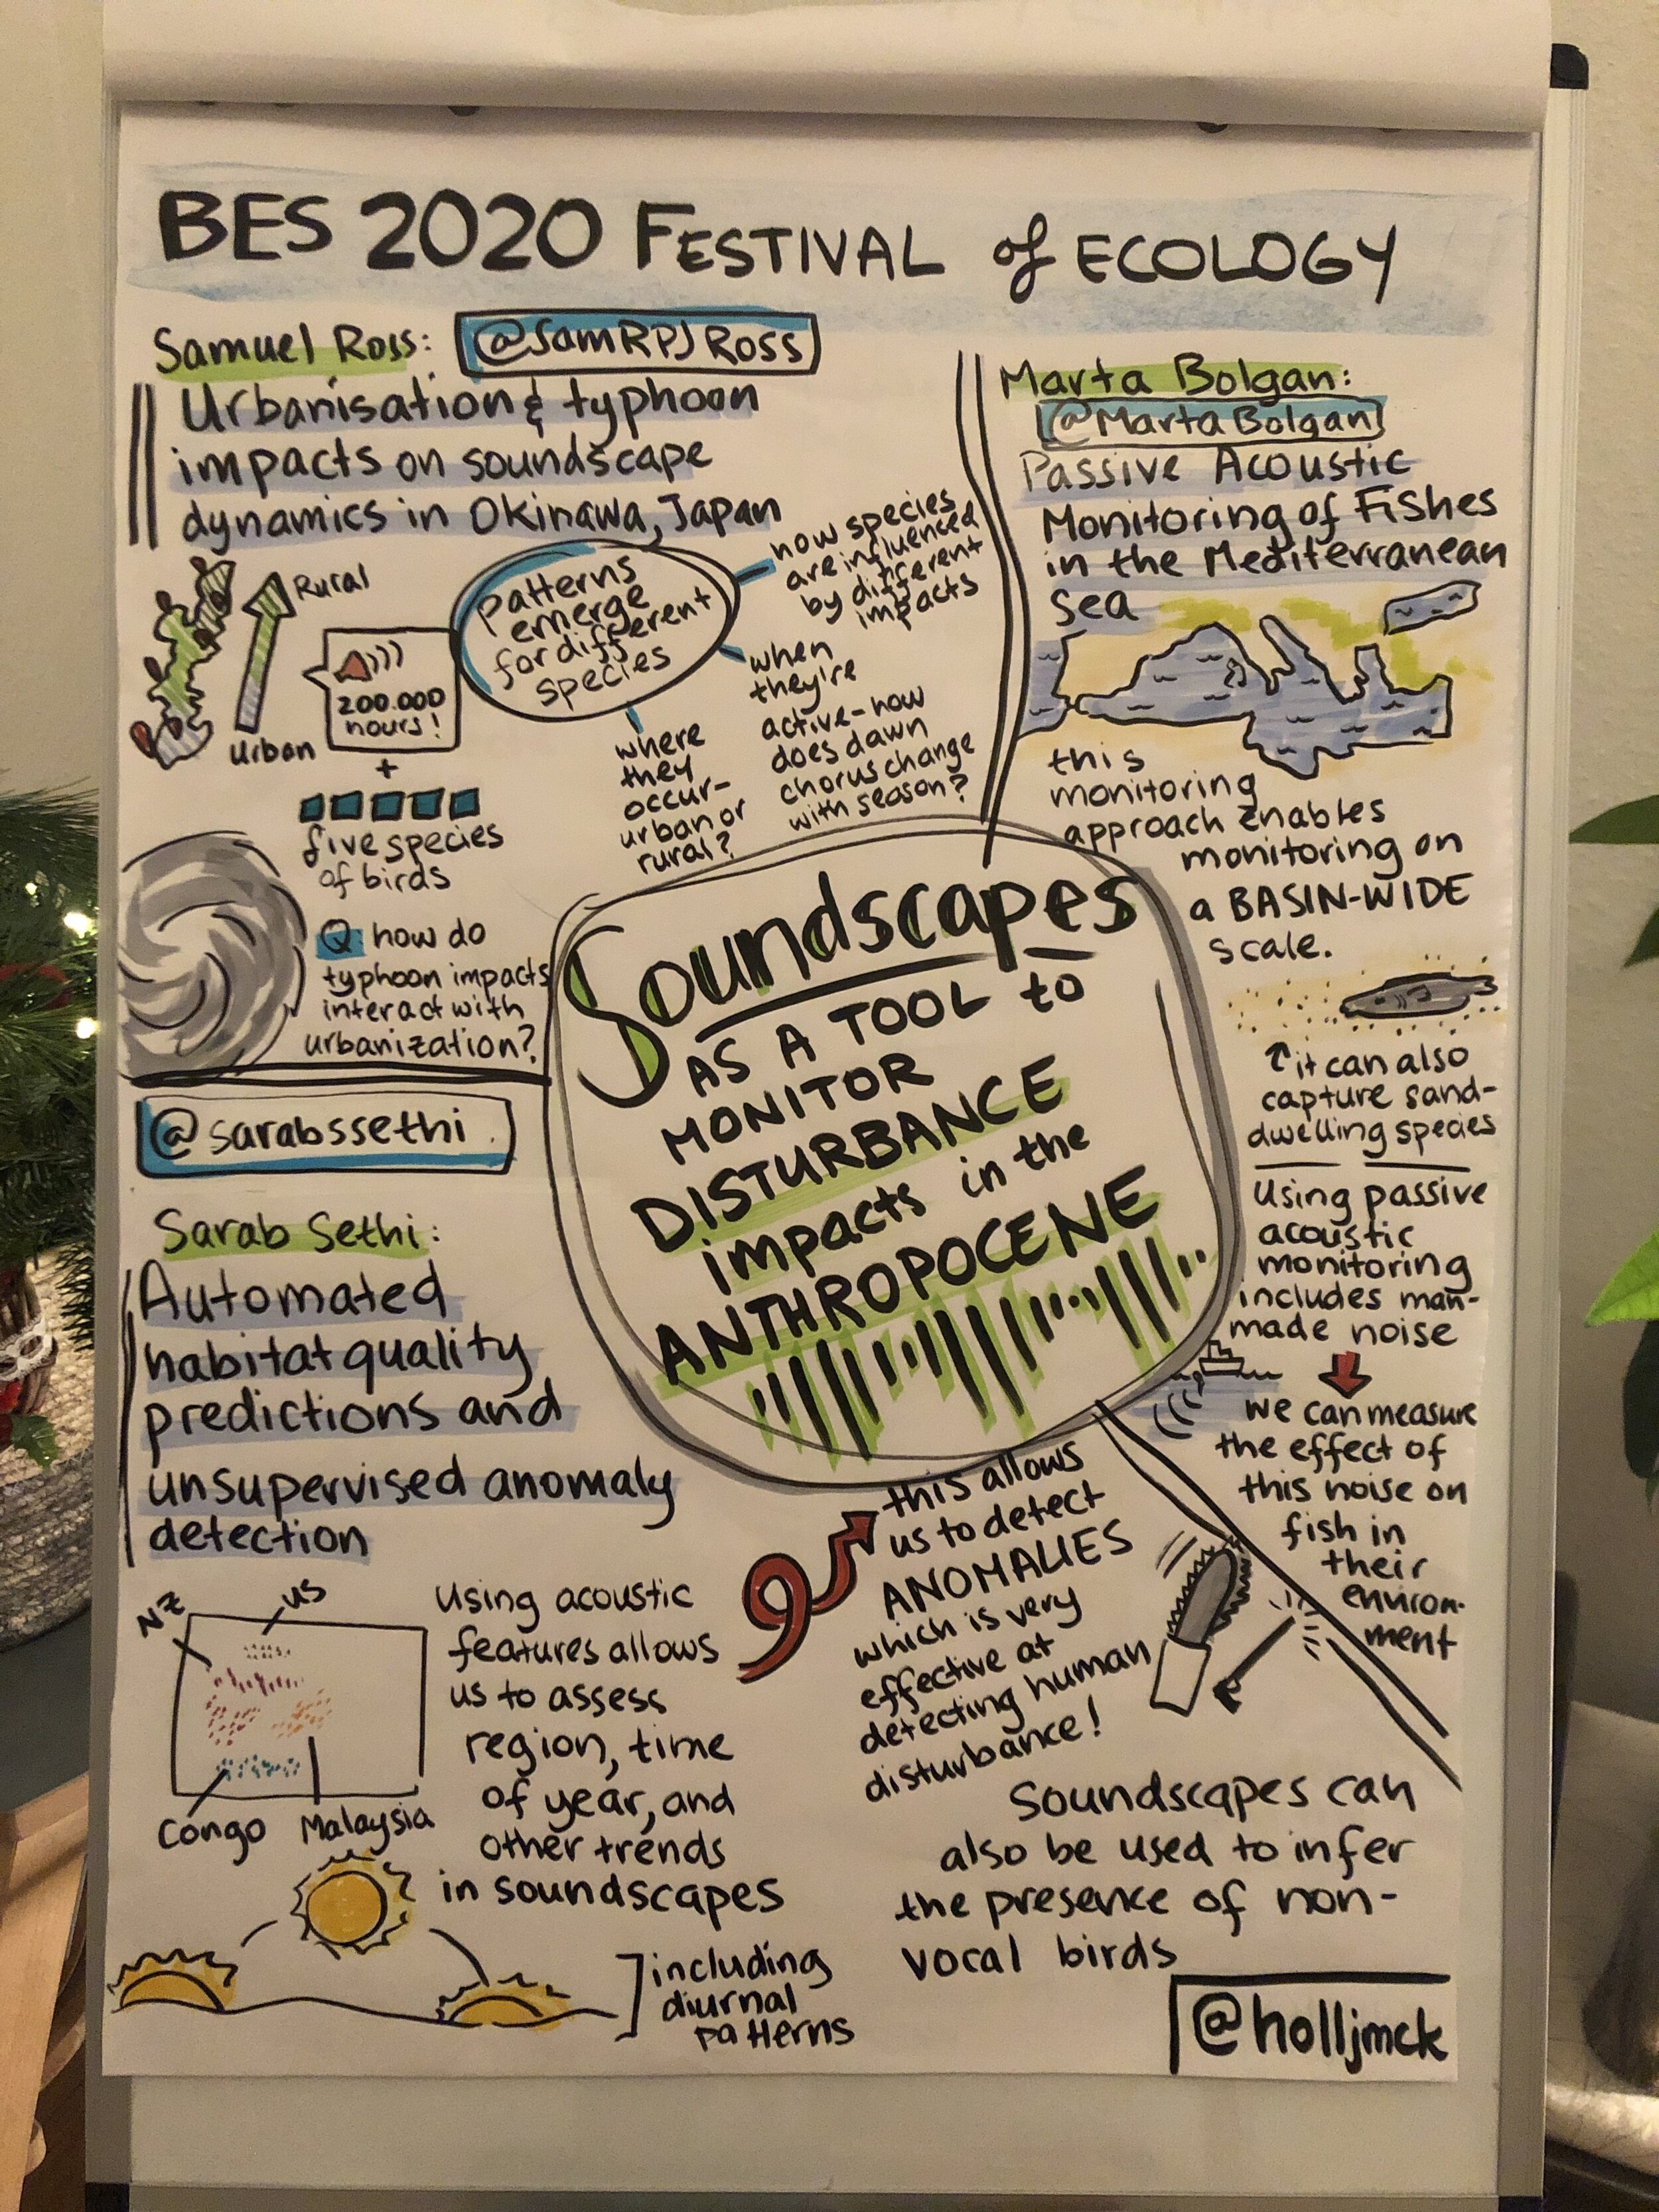 BES 2020 FESTIVAL of ECOLOGY
Samuel Ross: @SamRPJRoss
Urbanisation & typhoon
impacts on soundscape
dynamics in Okinawa, Japan
Rural
Urban
200.000
hours!
+
five species
of birds
patterns
emerge
for different
species
how species
are influenced
by different
impacts
when
they're
active-how
does dawn
chorus change
with season?
where
they
occur-
urban or
rural?
Q: how do
typhoon impacts
interact with
urbanization?
Marta Bolgan:
@MartaBolgan
Passive Acoustic
Monitoring of Fishes
in the Mediterranean
Sea
this
monitoring
approach enables
monitoring on
a BASIN-WIDE
scale.
it can also
capture sand-
dwelling species
Using passive
acoustic
monitoring
includes man-
made noise
we can measure
the effect of
this noise on
fish in
their
environ-
ment
Soundscapes
AS A TOOL to
MONITOR
DISTURBANCE
impacts in the
ANTHROPOCENE
@sarabssethi
Sarab Sethi:
Automated
habitat quality
predictions and
unsupervised anomaly
detection
NZ
US
Congo
Malaysia
Using acoustic
features allows
us to assess
region, time
of year, and
other trends
in soundscapes
including
diurnal
patterns
this allows
us to detect
ANOMALIES
which is very
effective at
detecting human
disturbance!
Soundscapes can
also be used to infer
the presence of non-
vocal birds
@holljmck